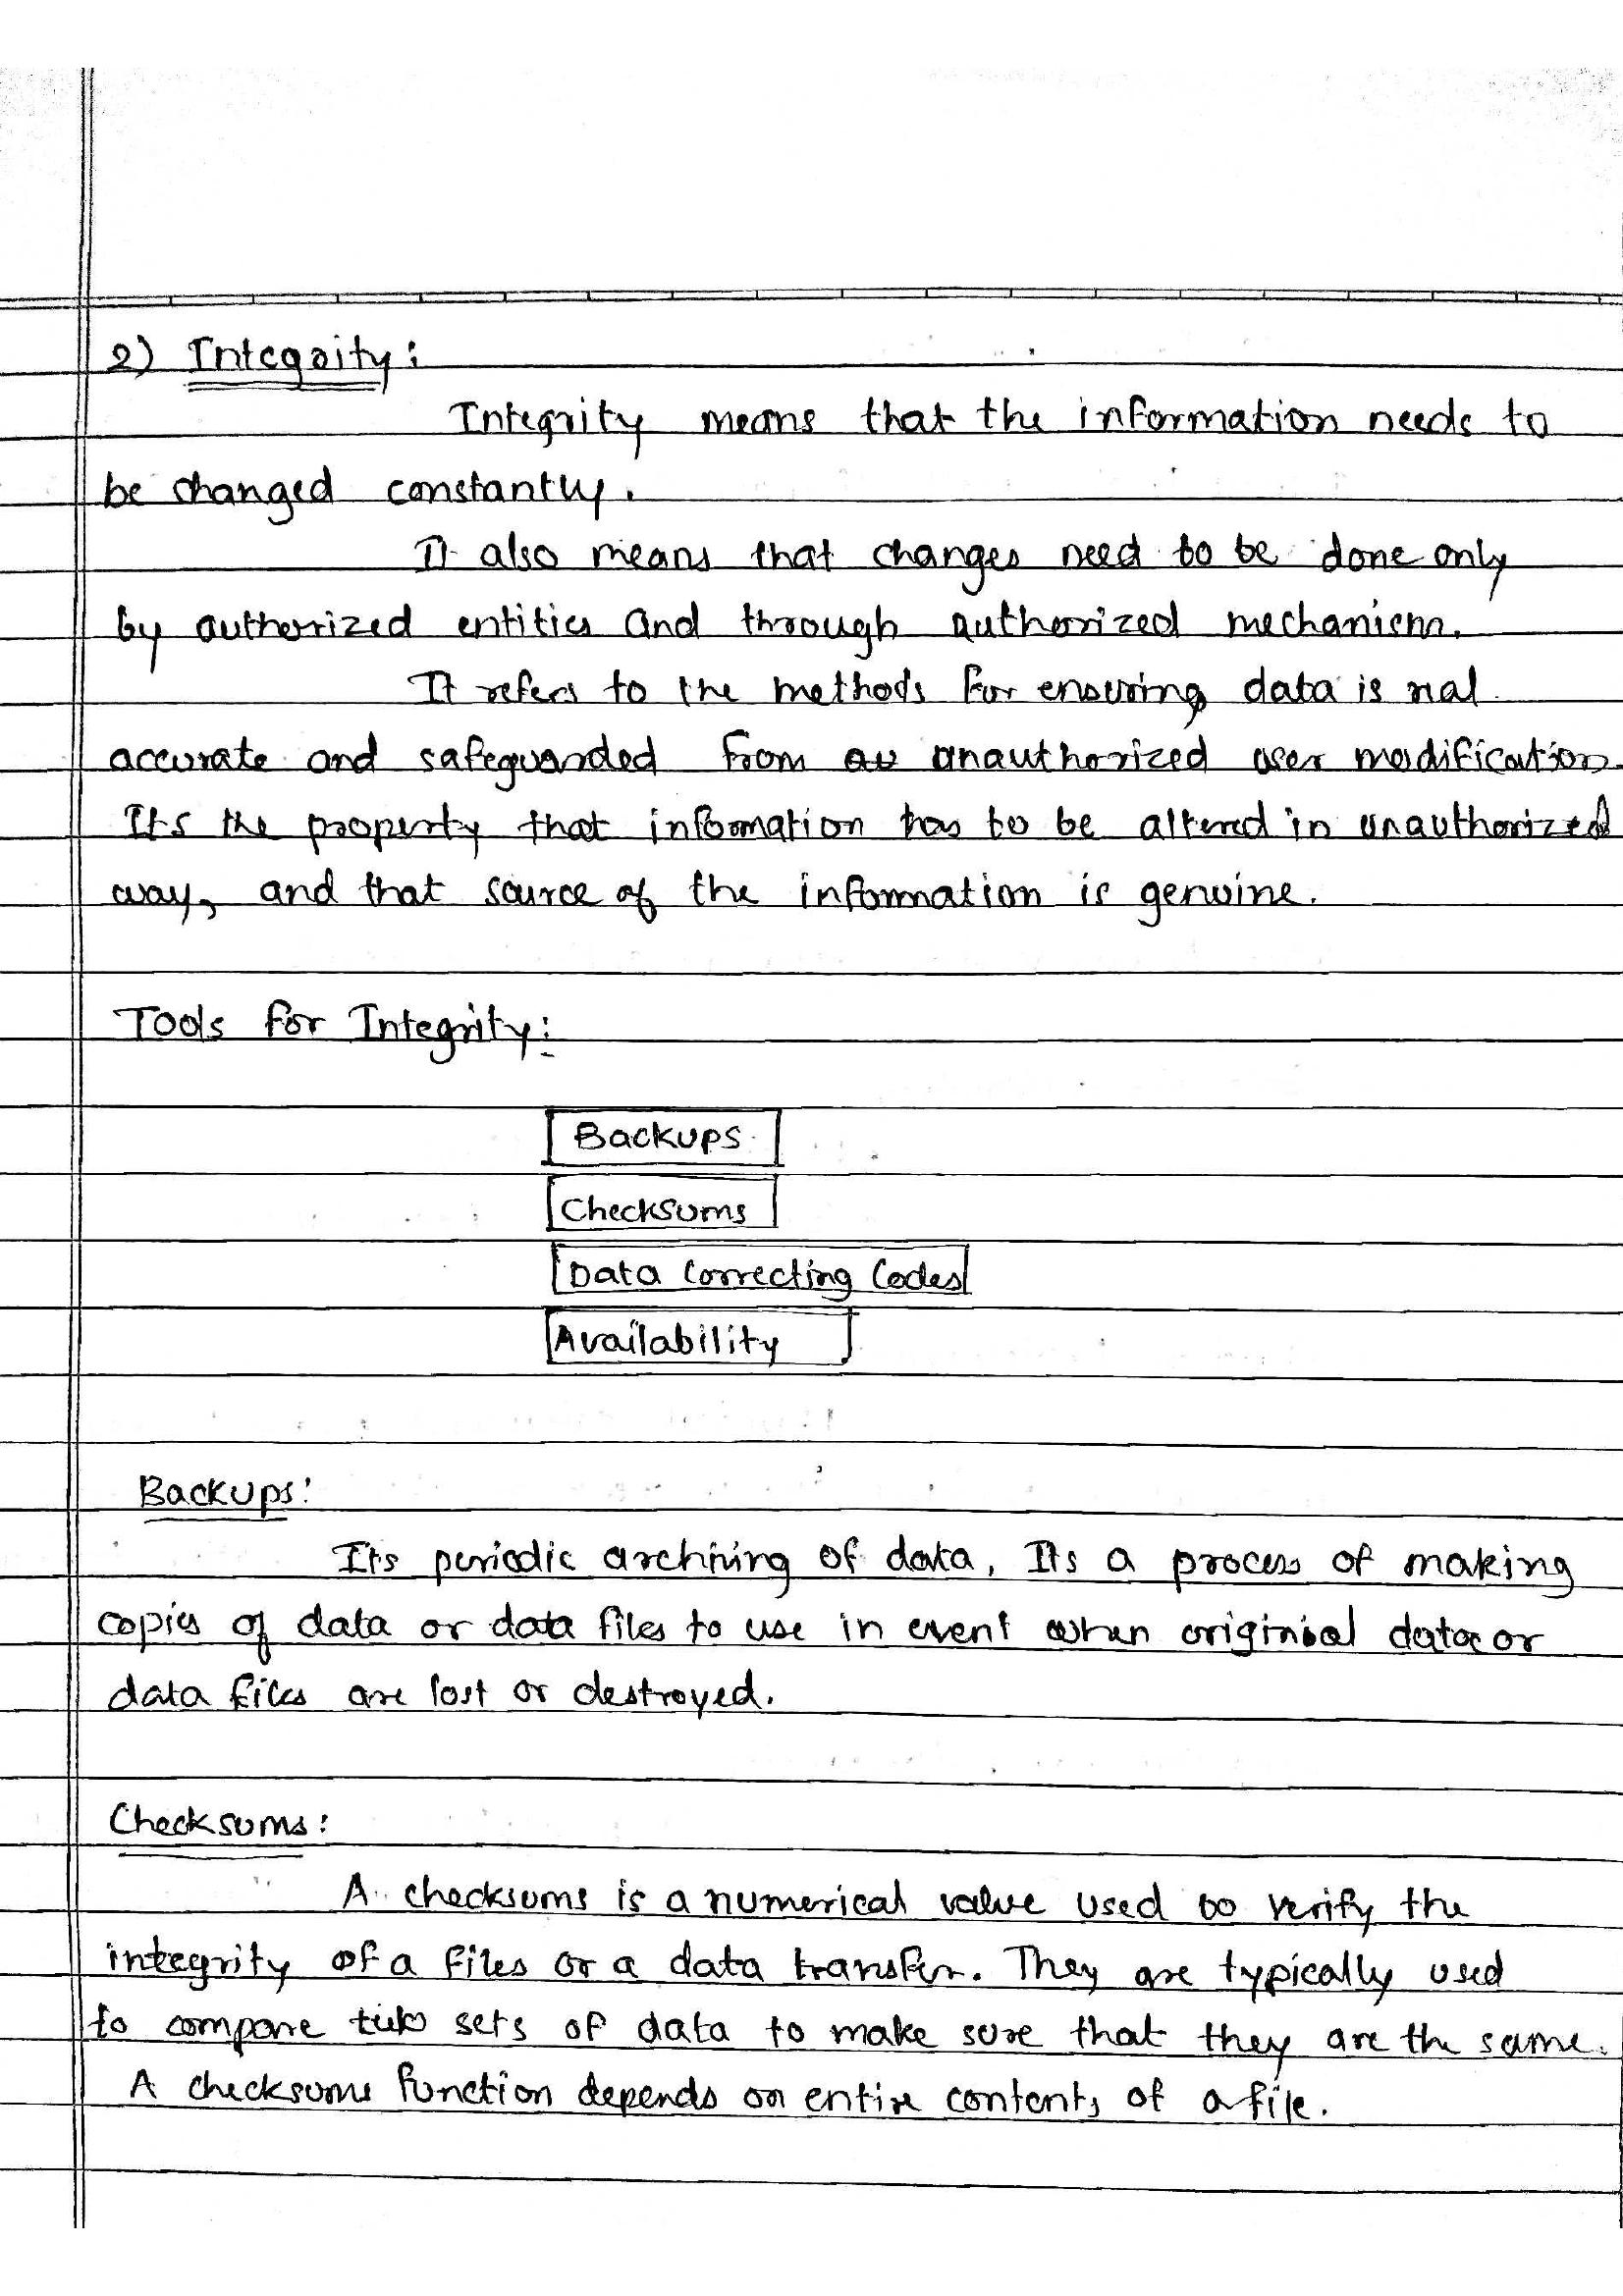 2) Integrity:
Integrity means that the information needs to
be changed constantly.
It also means that changes need to be done only
by authorized entities and through authorized mechanism.
It refers to the methods for ensuring data is real
accurate and safeguarded from unauthorized user modification.
Its the property that information has to be altered in unauthorized
way, and that source of the information is genuine.
Tools for Integrity:
Backups
Checksums
Data Correcting Codes
Availability
Backups:
Its periodic archiving of data, Its a process of making
copies of data or data files to use in event when original data or
data files are lost or destroyed.
Checksums:
A checksums is a numerical value used to verify the
integrity of a files or a data transfer. They are typically used
to compare two sets of data to make sure that they are the same.
A checksums function depends on entire contents of a file.